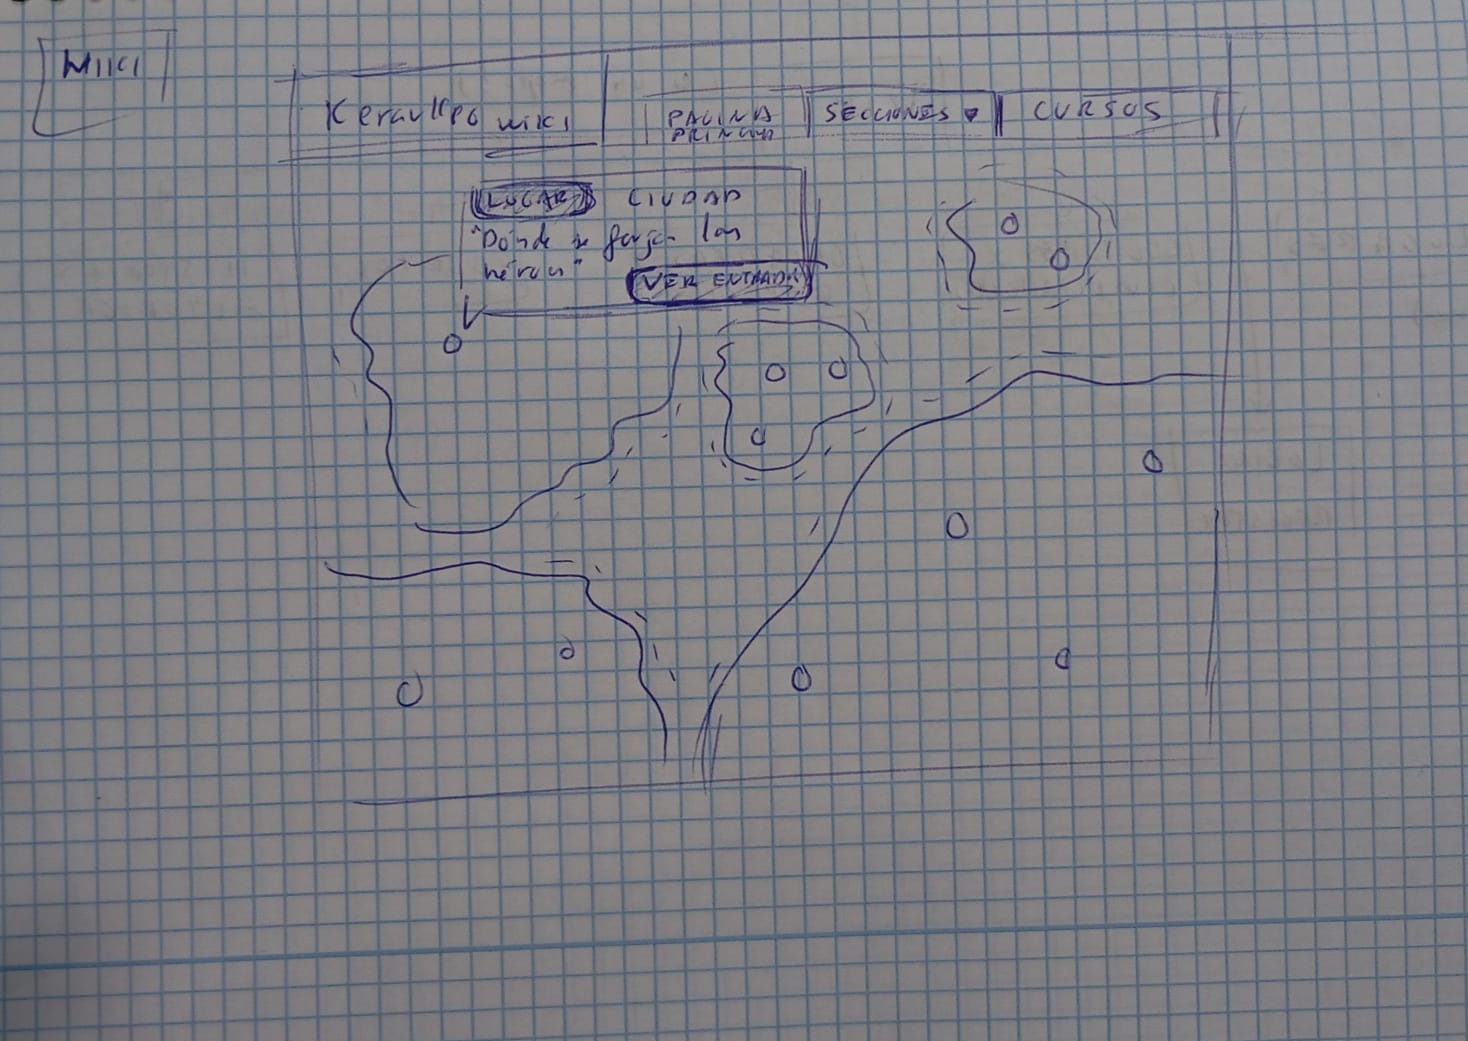 WIKI
WIKI
PAGINA
SECCIONES
CURSOS
LUGAR CIUDAD
"Donde se forjan los
héroes"
VER ENTRADA